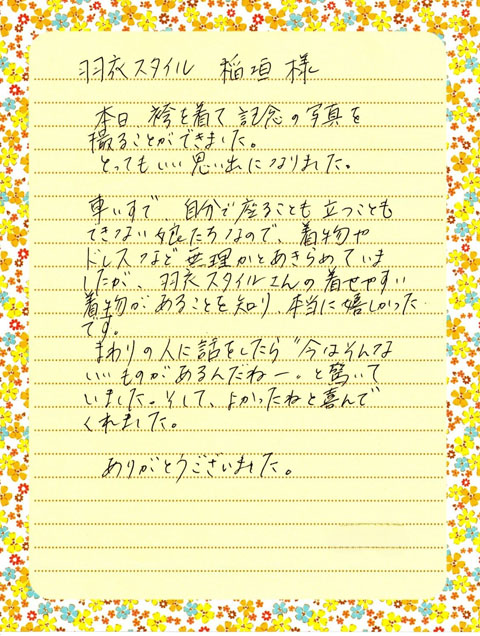 羽衣スタイル 稲垣 様
本日 袴を着て 記念の写真を
撮ることができました。
とってもいい思い出になりました。
車いすで、自分で座ることも立つことも
できない娘たちなので、着物や
ドレスなど無理かとあきらめていま
したが、羽衣スタイルさんの着せやすい
着物があることを知り、本当に嬉しかった
です。
まわりの人に話をしたら"今はそんな
いいものがあるんだねー。と驚いて
いました。そして、よかったねと喜んで
くれました。
ありがとうございました。